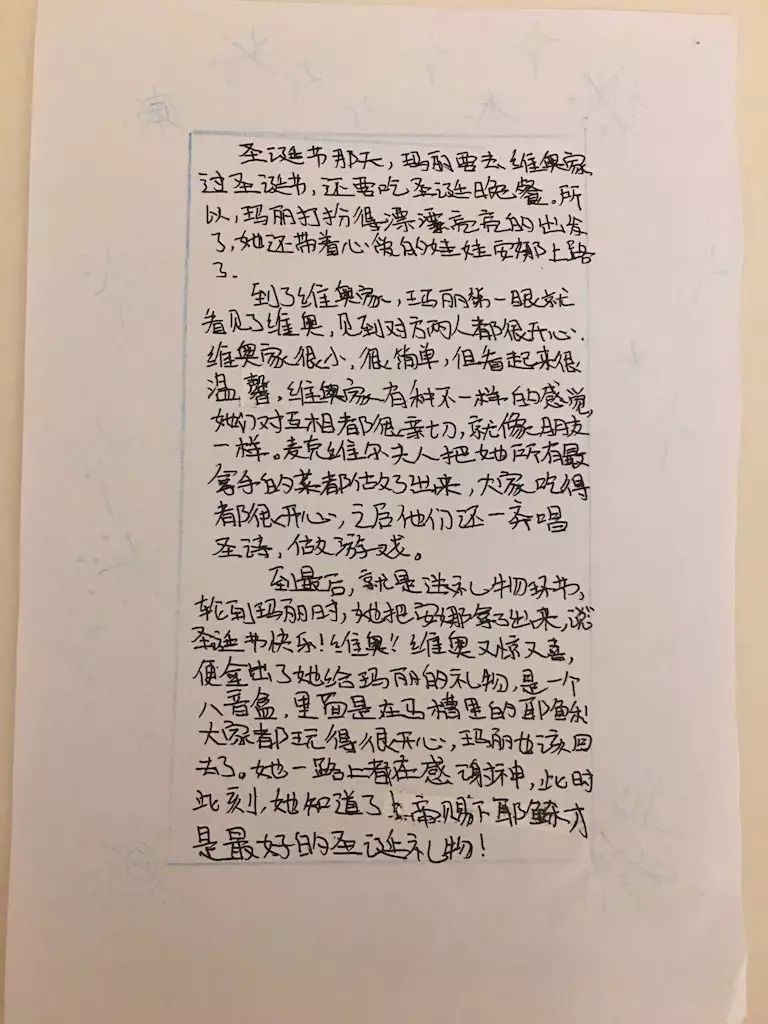 圣诞节那天，玛丽要去维奥家
过圣诞节，还要吃圣诞晚餐。所
以，玛丽打扮得漂漂亮亮的出发
了，她还带着心爱的娃娃安娜上路
了.
到了维奥家，玛丽第一眼就
看见了维奥，见到对方两人都很开心.
维奥家很小，很简单，但看起来很
温馨，维奥家有种不一样的感觉，
她们对互相都很亲切，就像朋友
一样。麦克维尔夫人把她所有最
拿手的菜都做了出来，大家吃得
都很开心，之后他们还一齐唱
圣诗，做游戏。
到最后，就是送礼物环节，
轮到玛丽时，她把安娜拿了出来，说
圣诞节快乐！维奥！！维奥又惊又喜，
便拿出了她给玛丽的礼物，是一个
八音盒，里面是在马槽里的耶稣！
大家都玩得很开心，玛丽也该回
去了。她一路上都在感谢神，此时
此刻，她知道了上帝赐下耶稣才
是最好的圣诞礼物！